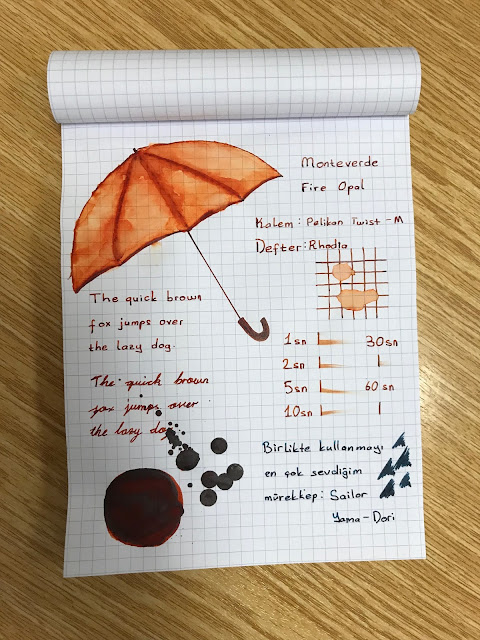 Monteverde
Fire Opal
Kalem : Pelikan Twist - M
Defter : Rhodia
The quick brown
fox jumps over
the lazy dog.
The quick brown
fox jumps over
the lazy dog.
1 sn 30 sn
2 sn
5 sn 60 sn
10 sn
Birlikte kullanmayı
en çok sevdiğim
mürekkep : Sailor
Yama - Dori